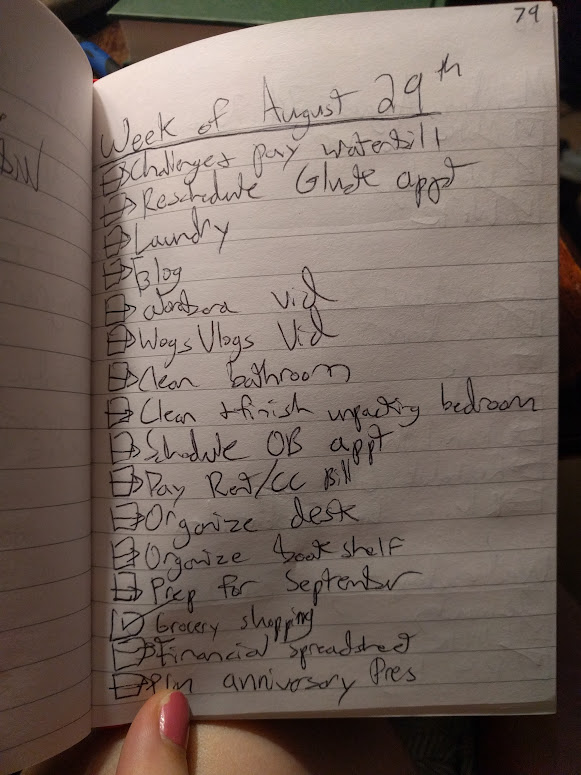 79
Week of August 29th
Challenge + pay waterbill
Reschedule appt
Laundry
Blog
vid
Wogs Vlogs Vid
Clean bathroom
Clean + finish unpacking bedroom
Schedule OB appt
Pay Rent/CC Bill
Organize desk
Organize bookshelf
Prep for September
Grocery shopping
Financial spreadsheet
Plan anniversary Pres